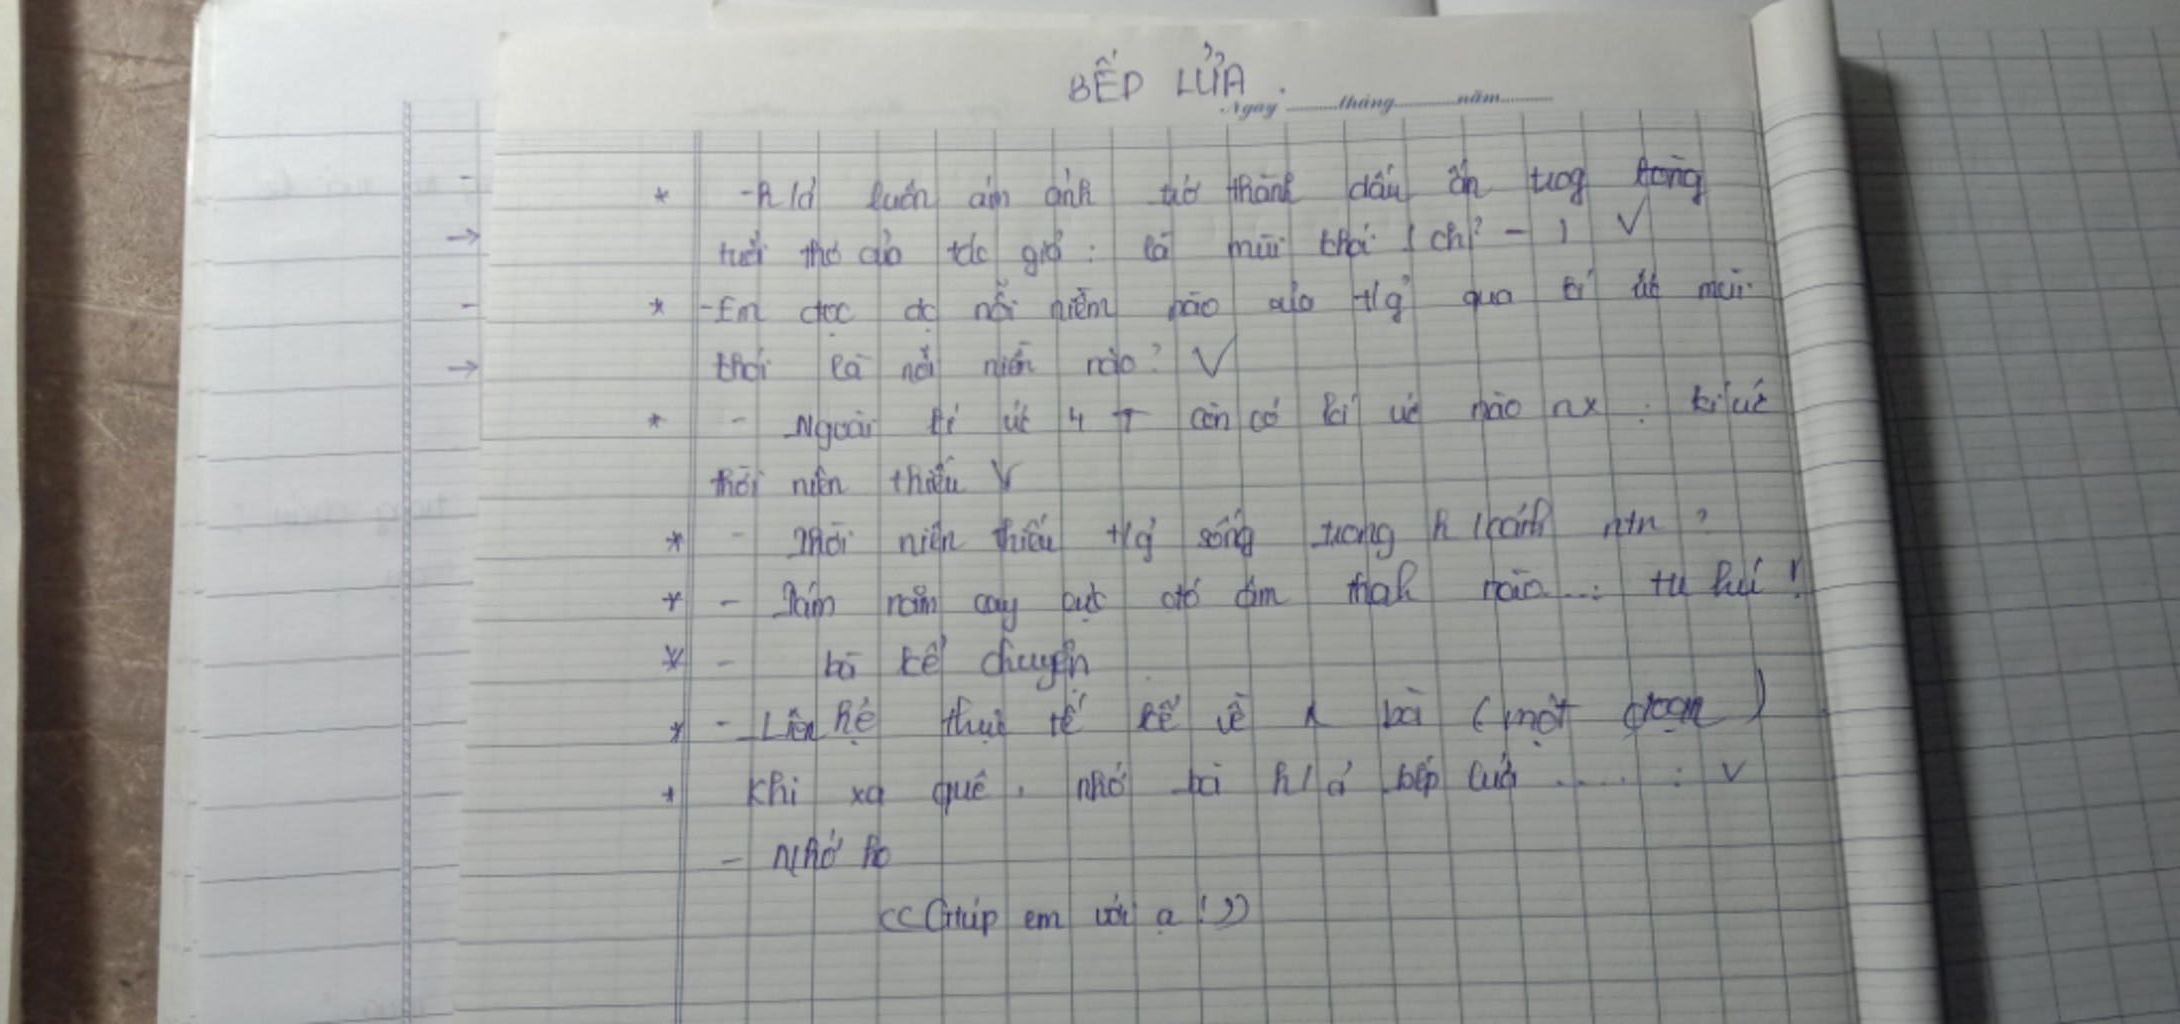 BẾP LỬA.
Ngày ........ tháng ........ năm ........
* -h/ả luôn ám ảnh trở thành dấu ấn trog lòng
→ tuổi thơ của tác giả : là mùi khói (chỉ - ) V
* -Em đọc đc nỗi niềm nào của t/g qua kí ức mùi
→ khói là nỗi niềm nào? V
* - Ngoài kí ức 4 T còn có kí ức nào nx : kí ức
thời niên thiếu V
* - Thời niên thiếu t/g sống trong h/cảnh ntn ?
* - Tám năm cay cực đó âm thah nào...: tu hú !
* - bà kể chuyện
* - Liên hệ thực tế kể về 1 bà (một đoạn)
* Khi xa quê, nhớ bà h/ả bếp lửa ..... : V
- Nhớ ho
<<Giúp em với ạ !>>